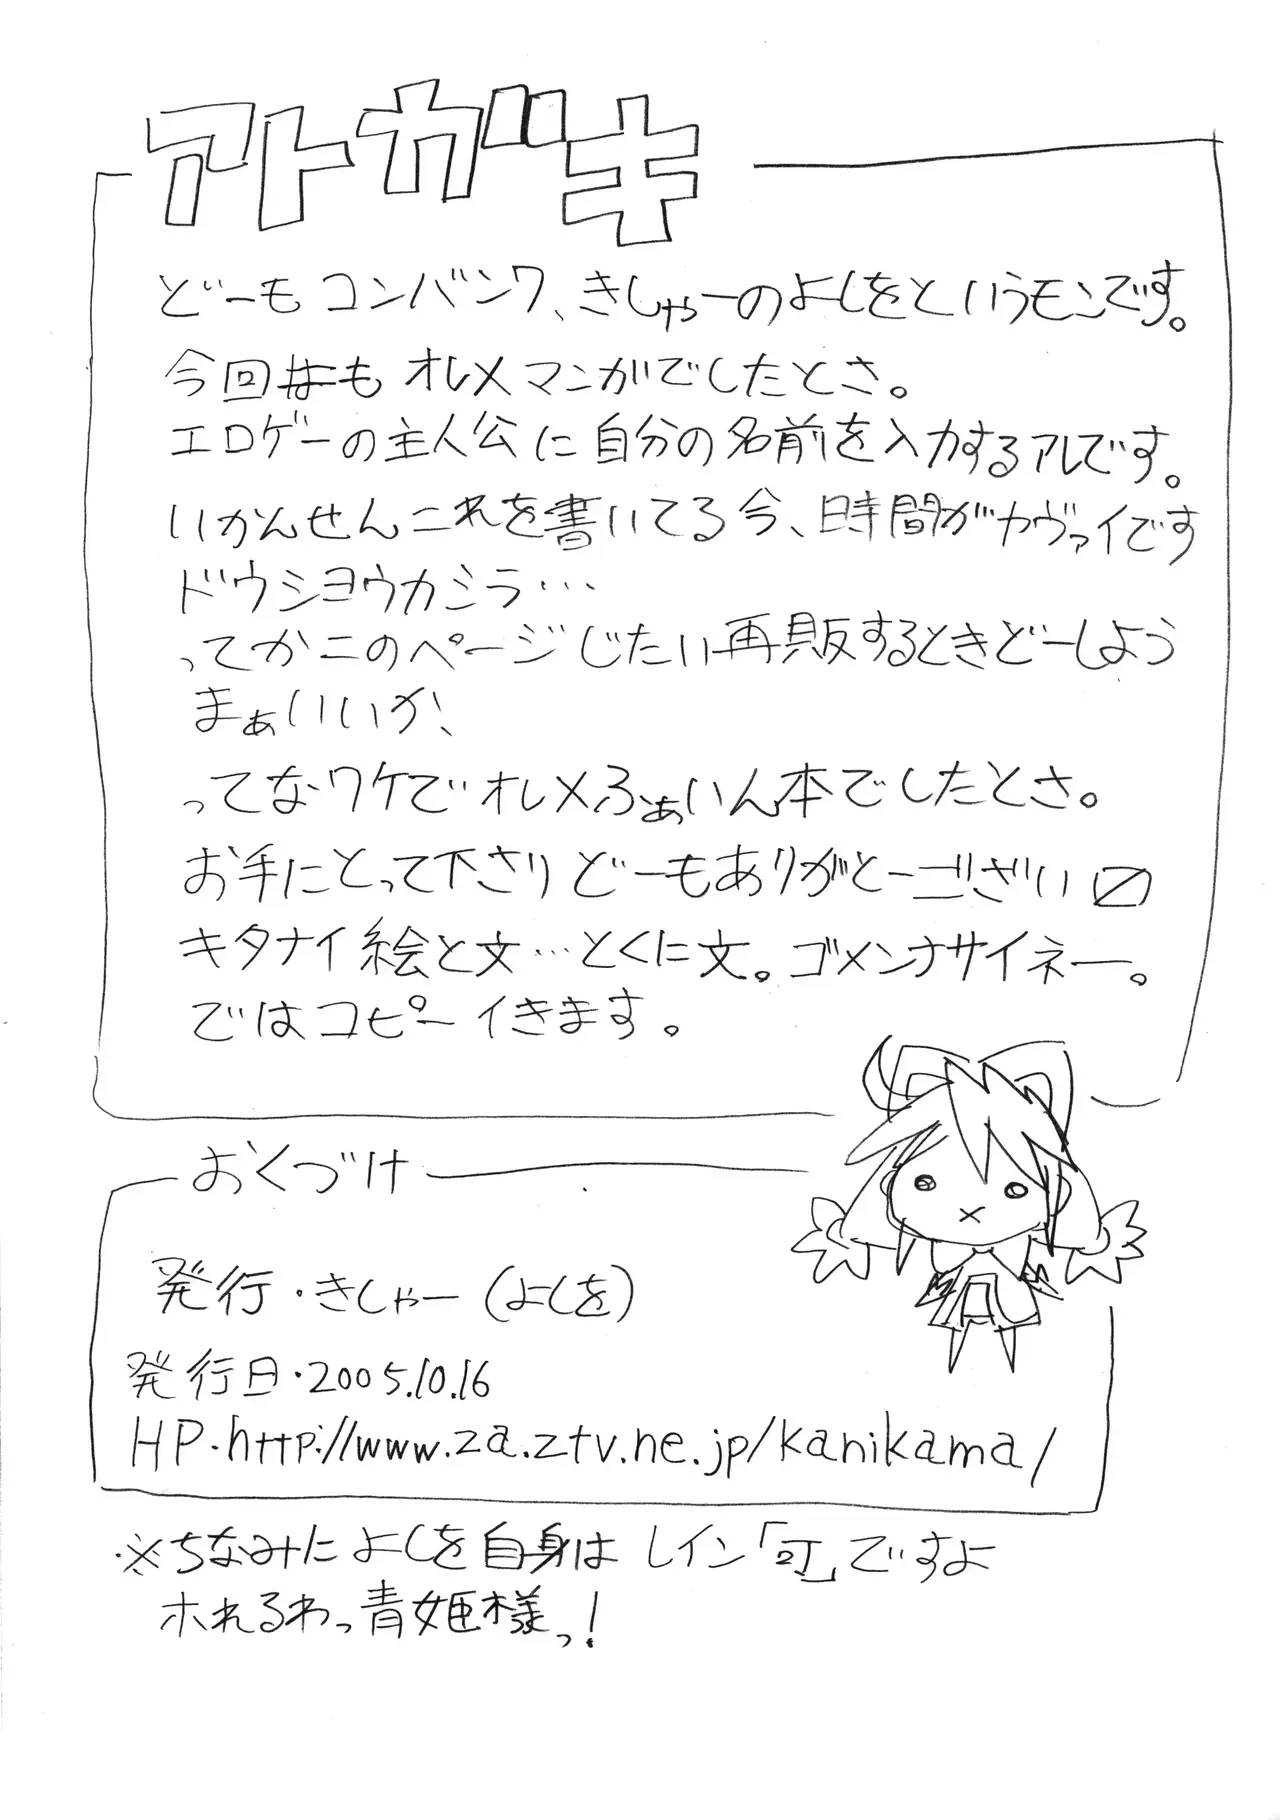 アトガキ
どーもコンバンワ、きしゃーのよしをというモンです。
今回もオレメマンガでしたとさ。
エロゲーの主人公に自分の名前を入力するアレです。
いかんせんこれを書いてる今、時間がヤヴァイです
ドウシヨウカシラ…
ってかこのページじたい再販するときどーしよう
まぁいいか、
ってなワケでオレメふぁいん本でしたとさ。
お手にとって下さりどーもありがとーござい〼
キタナイ絵と文…とくに文。ゴメンナサイネー。
ではコピーイきます。
おくづけ
発行・きしゃー(よしを)
発行日・2005.10.16
HP・http://www.za.ztv.ne.jp/kanikama/
※ちなみによしを自身はレイン「訂」ですよ
ホれるわっ青姫様っ!